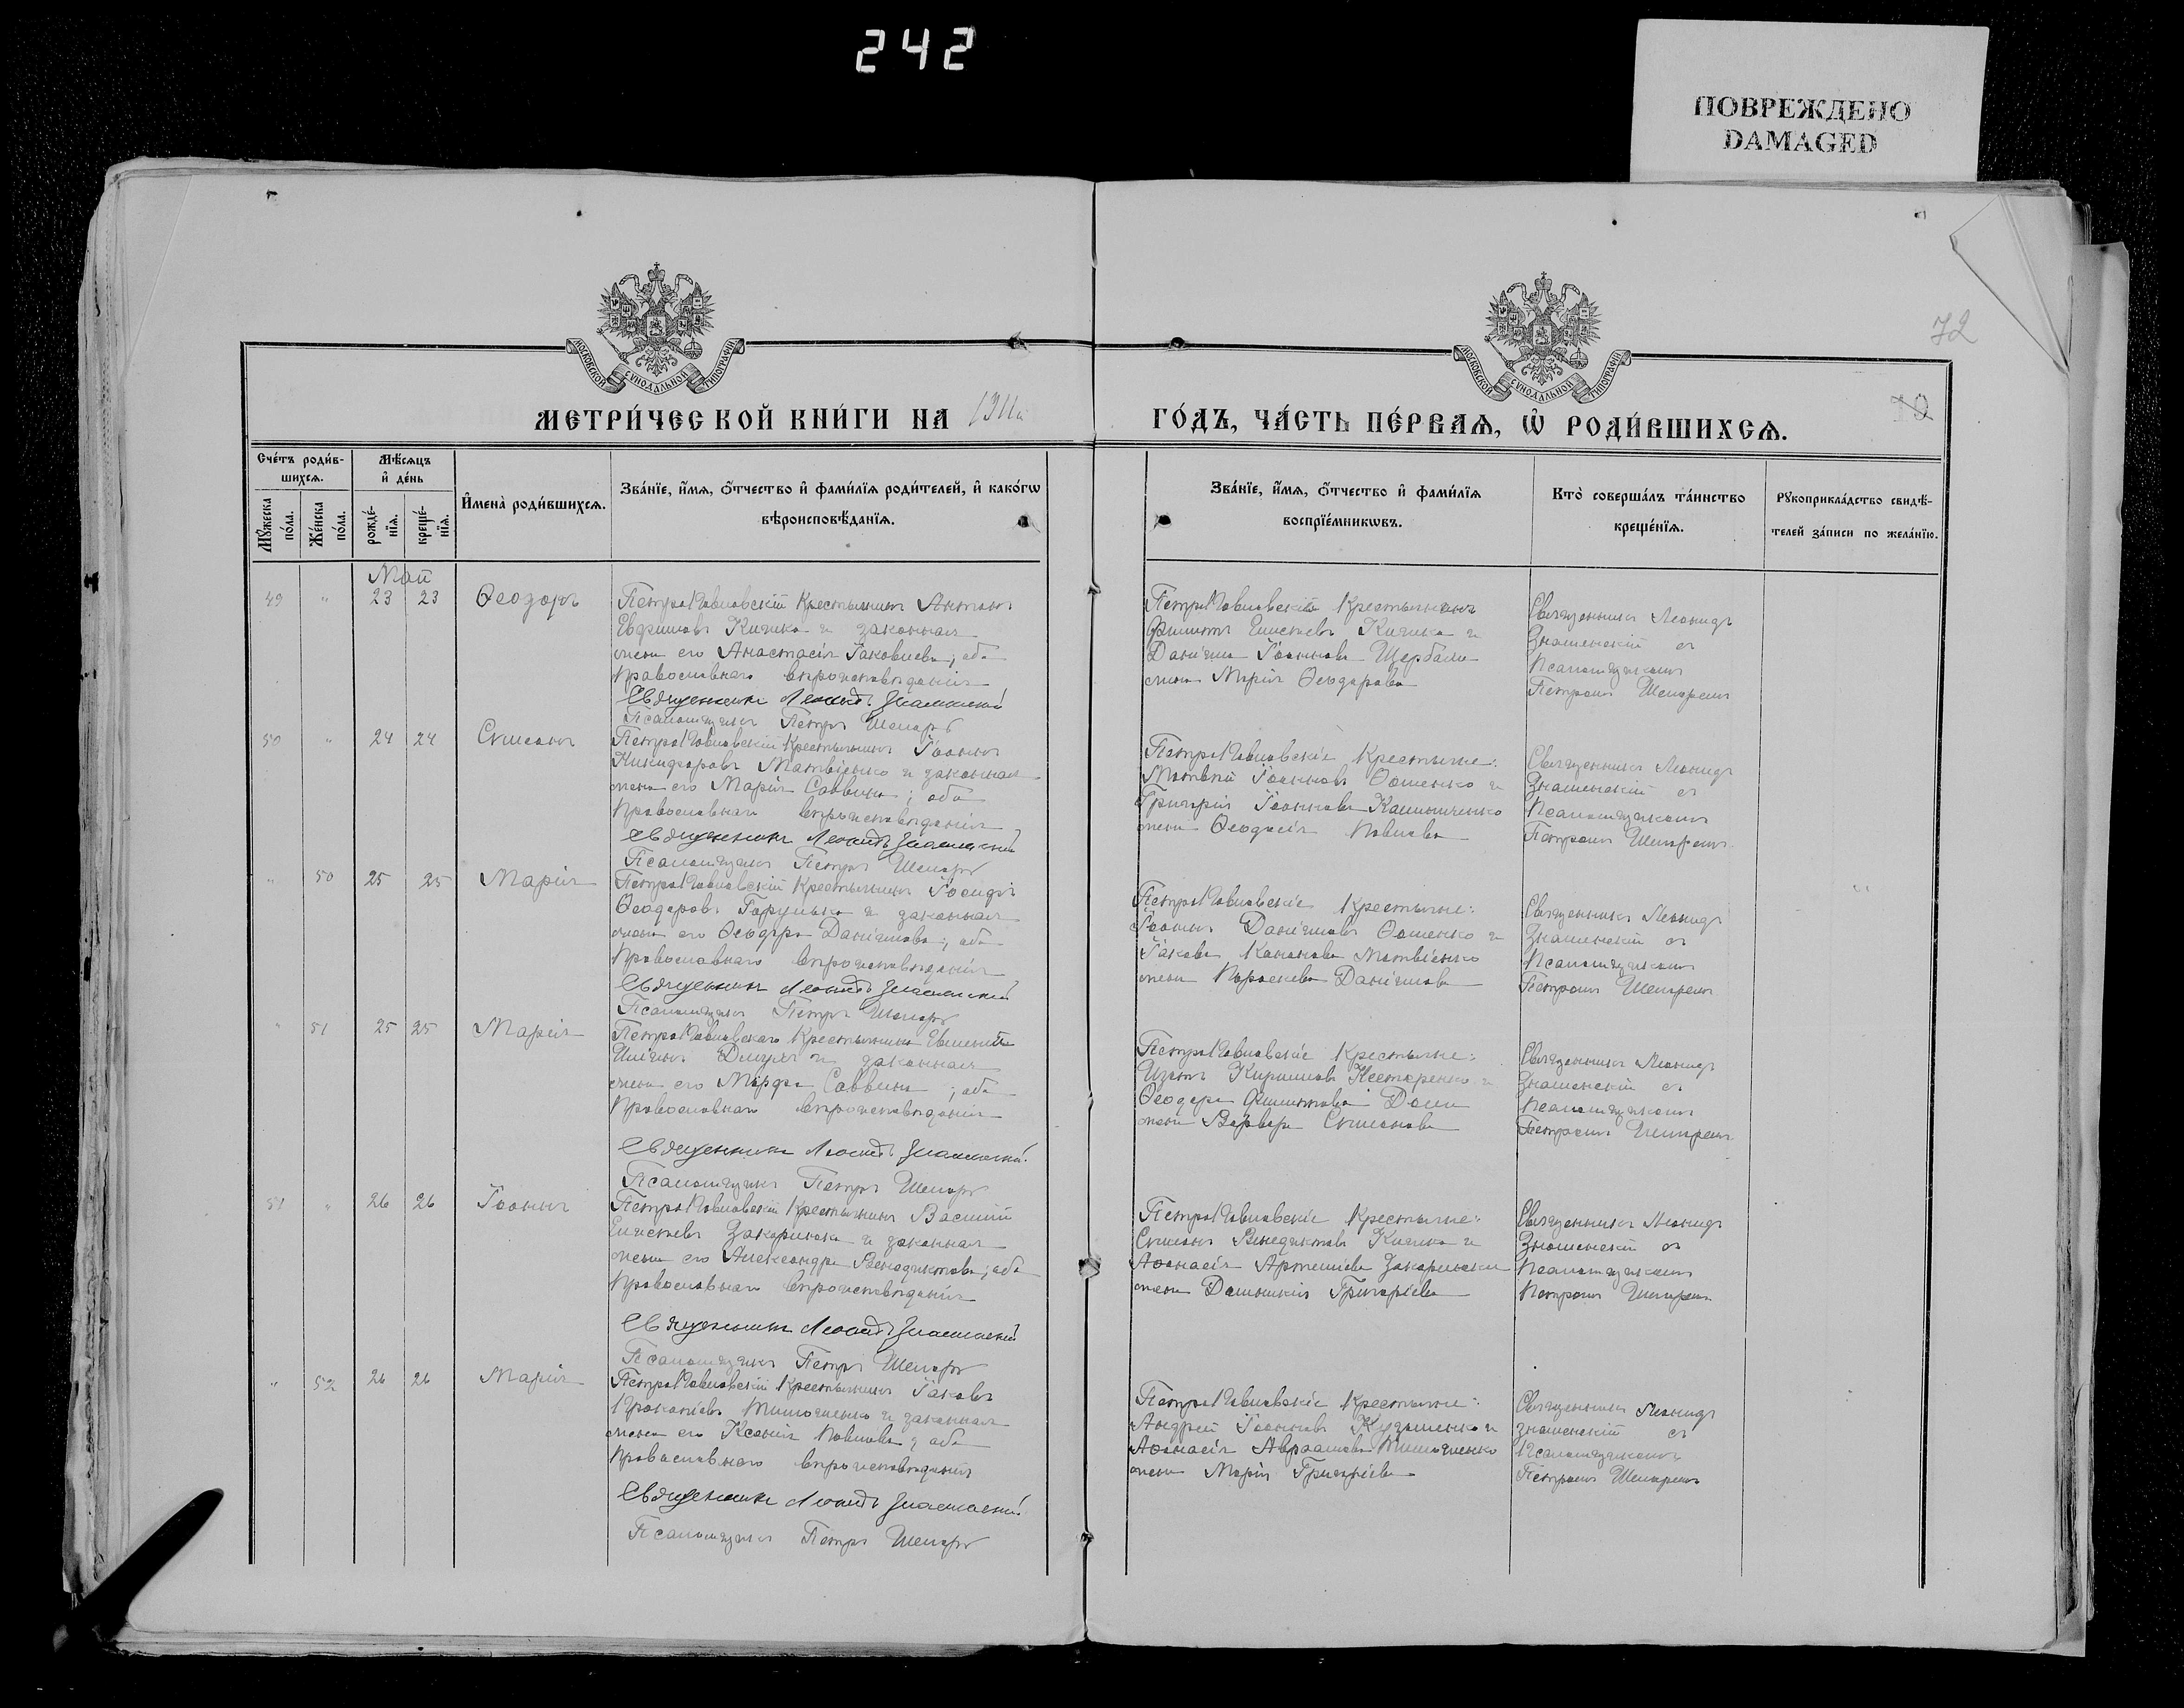 242
ПОВРЕЖДЕНО
DAMAGED
72
МОСКОВСКОЙ СѴНОДАЛЬНОЙ ТИПОГРАФІИ
МОСКОВСКОЙ СѴНОДАЛЬНОЙ ТИПОГРАФІИ
МЕТРИ́ЧЕСКОЙ КНИ́ГИ НА 1911й
ГО́ДЪ, ЧА́СТЬ ПЕ́РВАѦ, Ѡ҆ РОДИ́ВШИХСѦ.
Сче́тъ роди́в-
шихсѧ.
Мѣ́сѧцъ
и҆ де́нь
Мꙋ́жеска
по́ла.
Же́нска
по́ла.
рожде́-
нїѧ.
креще́-
нїѧ.
И҆мена̀ роди́вшихсѧ.
Зва́нїе, и҆́мѧ, ѻ҆́тчество и҆ фами́лїѧ роди́телей, и҆ како́гѡ
вѣроисповѣ́данїѧ.
Зва́нїе, и҆́мѧ, ѻ҆́тчество и҆ фами́лїѧ
воспрїе́мникѡвъ.
Кто̀ соверша́лъ та́инство
креще́нїѧ.
Рꙋкоприкла́дство свидѣ́-
телей за́писи по жела́нїю.
Май
49 " 23 23 Ѳеодоръ
Петро Павловскій крестьянинъ Антонъ
Евфимовъ Кичко и законная
жена его Анастасія Іаковлева; оба
православнаго вѣроисповѣданія
Священникъ Леонидъ Знаменскій
Псаломщикъ Петръ Шепаръ
Петро Павловскій крестьянинъ
Филиппъ Елисѣевъ Кичко и
Даніила Іоаннова Щербаки
жена Марія Ѳеодорова
Священникъ Леонидъ
Знаменскій съ
псаломщикомъ
Петромъ Шепаремъ
50 " 24 24 Симеонъ
Петро Павловскій крестьянинъ Іоаннъ
Никифоровъ Матвіенко и законная
жена его Марія Саввина; оба
православнаго вѣроисповѣданія
Священникъ Леонидъ Знаменскій
Псаломщикъ Петръ Шепаръ
Петро Павловскіе крестьяне:
Матвѣй Іоанновъ Ѳоменко и
Григорія Іоаннова
жена Ѳеодосія Павлова
Священникъ Леонидъ
Знаменскій съ
псаломщикомъ
Петромъ Шепаремъ
" 50 25 25 Марія
Петро Павловскій крестьянинъ Іосифъ
Ѳеодоровъ и законная
жена его Ѳеодора Даніилова; оба
православнаго вѣроисповѣданія
Священникъ Леонидъ Знаменскій
Псаломщикъ Петръ Шепаръ
Петро Павловскіе крестьяне:
Іоаннъ Даніиловъ Ѳоменко и
Іакова Кононова Матвіенко
жена Параскева Даніилова
Священникъ Леонидъ
Знаменскій съ
псаломщикомъ
Петромъ Шепаремъ
" 51 25 25 Марія
Петро Павловскаго крестьянина
и законная
жена его Марѳа Саввина; оба
православнаго вѣроисповѣданія
Священникъ Леонидъ Знаменскій
Псаломщикъ Петръ Шепаръ
Петро Павловскіе крестьяне:
Кирилловъ Нестеренко и
Ѳеодора Филиппова
жена Варвара Симеонова
Священникъ Леонидъ
Знаменскій съ
псаломщикомъ
Петромъ Шепаремъ
51 " 26 26 Іоаннъ
Петро Павловскій крестьянинъ Василій
Елисѣевъ и законная
жена его Александра Венедиктова; оба
православнаго вѣроисповѣданія
Священникъ Леонидъ Знаменскій
Псаломщикъ Петръ Шепаръ
Петро Павловскіе крестьяне:
Симеонъ Венедиктовъ Кичко и
Аѳанасія Артеміева
жена Домникія Григоріева
Священникъ Леонидъ
Знаменскій съ
псаломщикомъ
Петромъ Шепаремъ
" 52 26 26 Марія
Петро Павловскій крестьянинъ Іаковъ
Прокопіевъ Тимошенко и законная
жена его Ксенія Павлова; оба
православнаго вѣроисповѣданія
Священникъ Леонидъ Знаменскій
Псаломщикъ Петръ Шепаръ
Петро Павловскіе крестьяне:
Андрей Іоанновъ Кузьменко и
Аѳанасія Авраамова Тимошенко
жена Марія Григоріева
Священникъ Леонидъ
Знаменскій съ
псаломщикомъ
Петромъ Шепаремъ